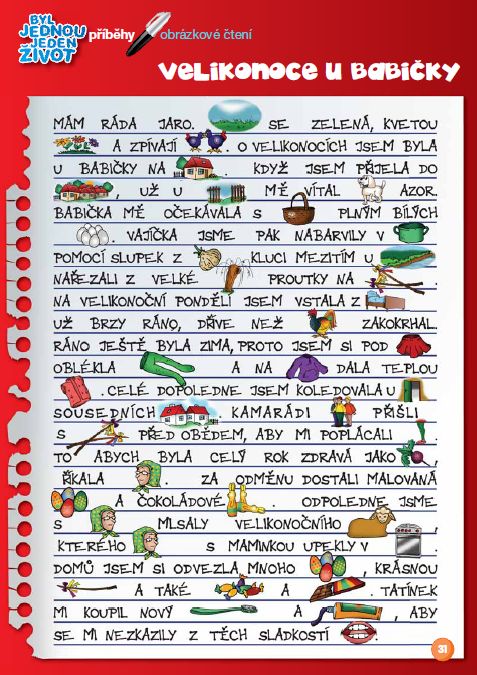 BYL
JEDNOU
JEDEN
ŽIVOT
příběhy obrázkové čtení
VELIKONOCE U BABIČKY
MÁM RÁDA JARO. SE ZELENÁ, KVETOU
A ZPÍVAJÍ . O VELIKONOCÍCH JSEM BYLA
U BABIČKY NA . KDYŽ JSEM PŘIJELA DO
, UŽ U MĚ VÍTAL AZOR.
BABIČKA MĚ OČEKÁVALA S PLNÝM BÍLÝCH
. VAJÍČKA JSME PAK NABARVILY V
POMOCÍ SLUPEK Z . KLUCI MEZITÍM U
NAŘEZALI Z VELKÉ PROUTKY NA .
NA VELIKONOČNÍ PONDĚLÍ JSEM VSTALA Z
UŽ BRZY RÁNO, DŘÍVE NEŽ ZAKOKRHAL.
RÁNO JEŠTĚ BYLA ZIMA, PROTO JSEM SI POD
OBLÉKLA A NA DALA TEPLOU
. CELÉ DOPOLEDNE JSEM KOLEDOVALA U
SOUSEDNÍCH . KAMARÁDI PŘIŠLI
S PŘED OBĚDEM, ABY MI POPLÁCALI .
TO ABYCH BYLA CELÝ ROK ZDRAVÁ JAKO ,
ŘÍKALA . ZA ODMĚNU DOSTALI MALOVANÁ
A ČOKOLÁDOVÉ . ODPOLEDNE JSME
S MLSALY VELIKONOČNÍHO ,
KTERÉHO S MAMINKOU UPEKLY V .
DOMŮ JSEM SI ODVEZLA MNOHO , KRÁSNOU
A TAKÉ A . TATÍNEK
MI KOUPIL NOVÝ A , ABY
SE MI NEZKAZILY Z TĚCH SLADKOSTÍ .
31